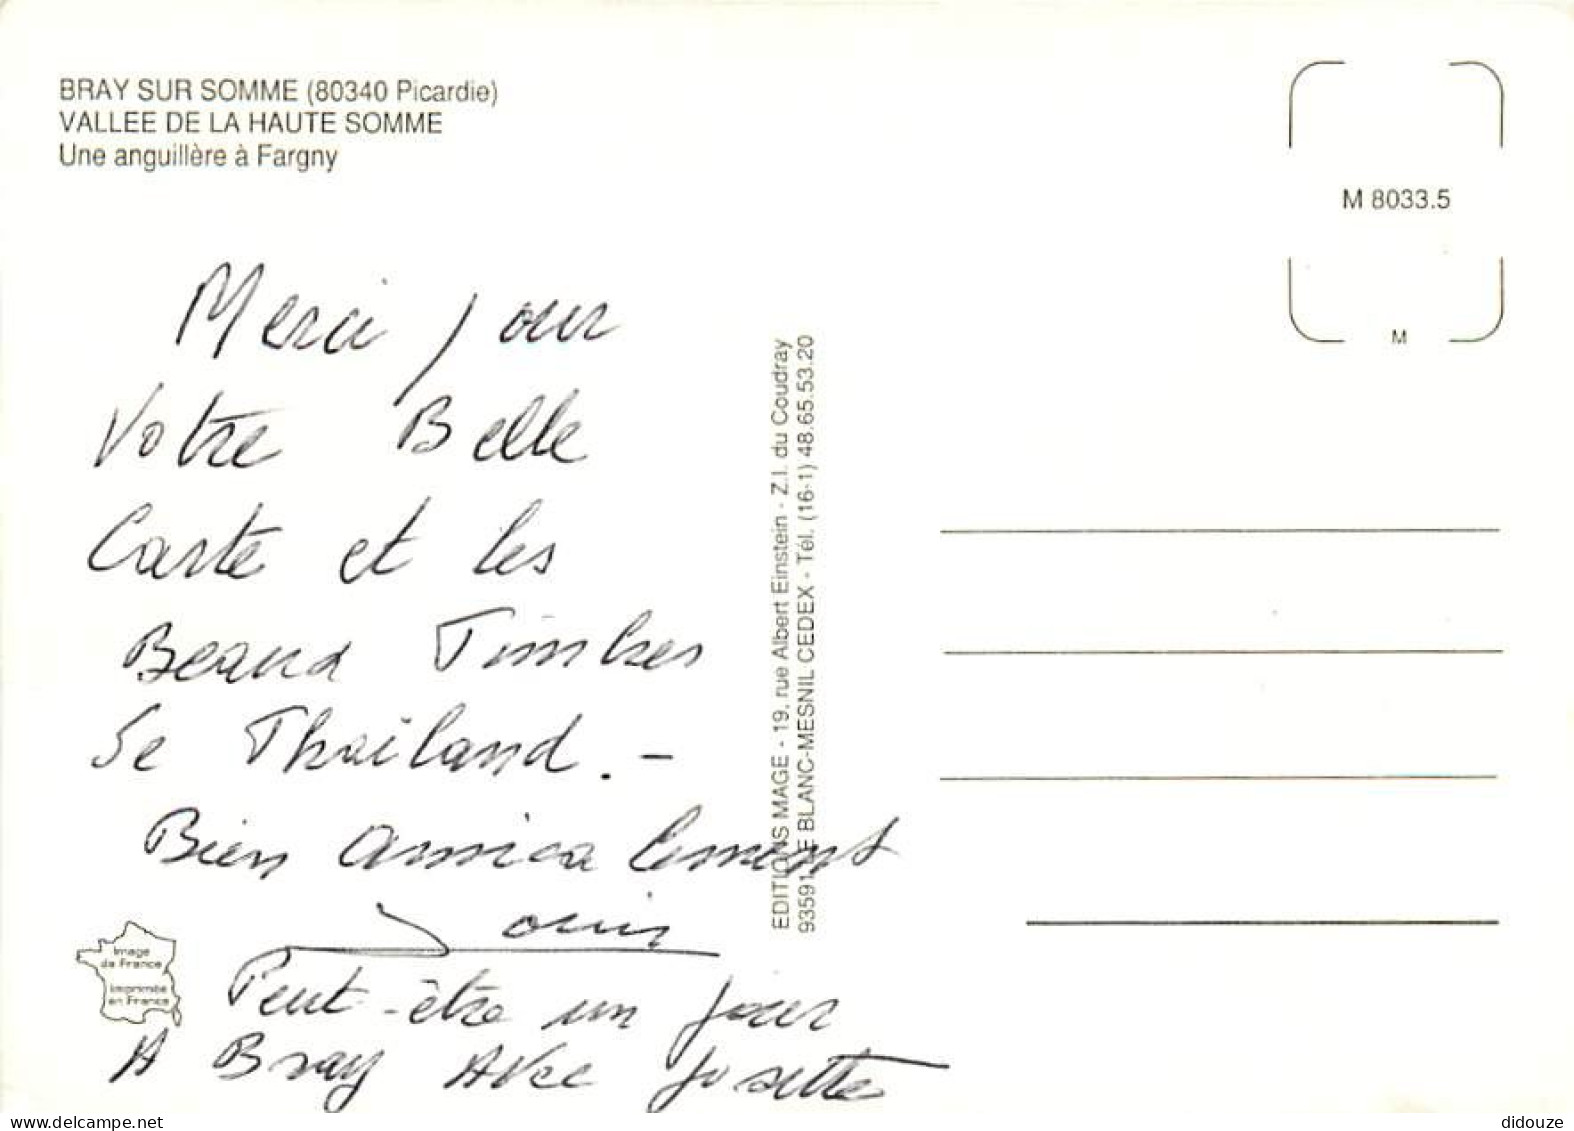 BRAY SUR SOMME (80340 Picardie)
VALLEE DE LA HAUTE SOMME
Une anguillère à Fargny
M 8033.5
M
Merci pour
Votre Belle
Carte et les
Beaux Timbres
de Thaïland. -
Bien amicalement
Louis
Peut-être un jour
A Bray Avec Josette
EDITIONS MAGE - 19, rue Albert Einstein - Z.I. du Coudray
93591 LE BLANC-MESNIL CEDEX - Tél. (16-1) 48.65.53.20
Image
de France
Imprimée
en France
didouze